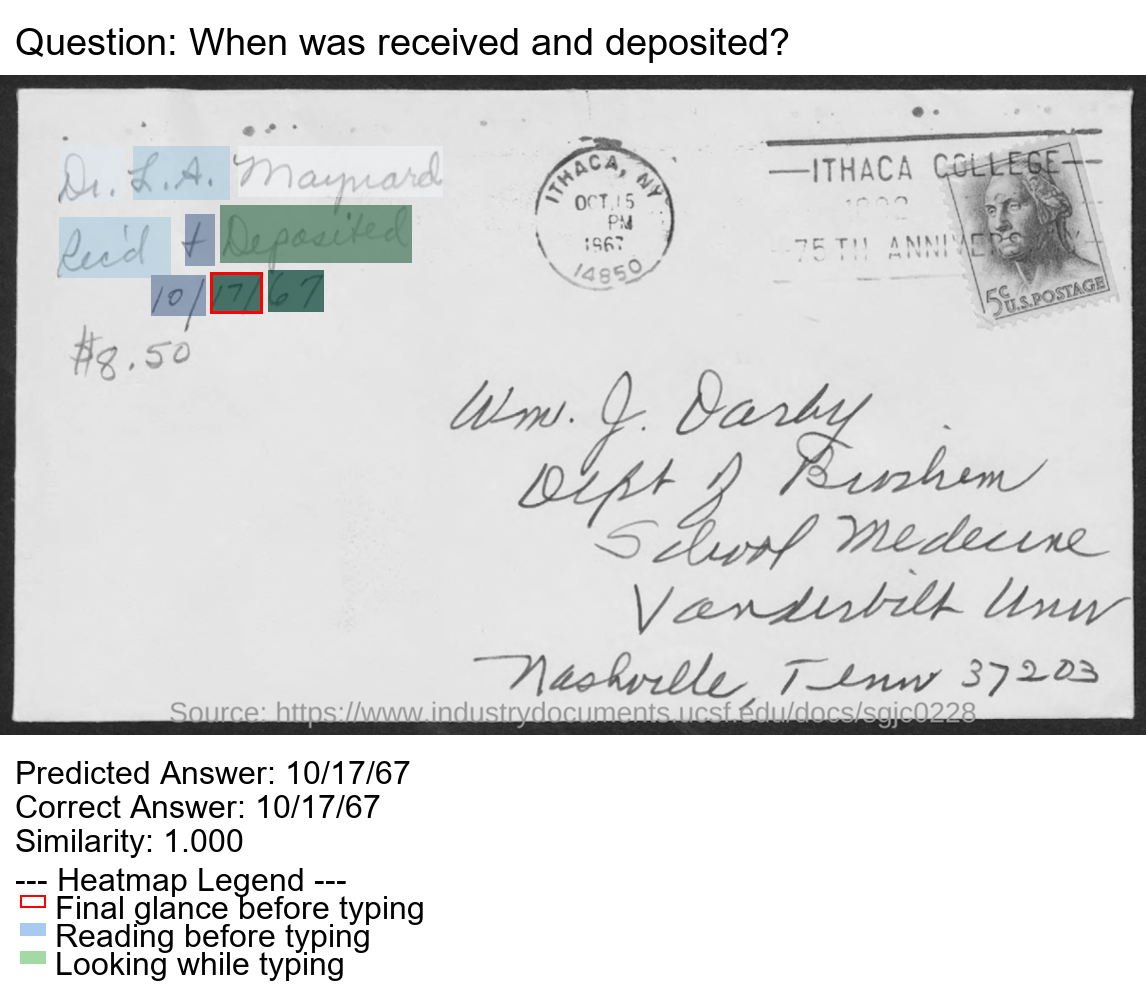 Question: When was received and deposited?
Dr. L.A. Maynard
Rec'd + Deposited
10/17/67
$8.50
ITHACA, NY
OCT 15
PM
1967
14850
ITHACA COLLEGE
1892
75TH ANNIVERS
5c U.S. POSTAGE
Wm. J. Darby
Dept of Biochem
School Medecine
Vanderbilt Univ
Nashville, Tenn 37203
Source: https://www.industrydocuments.ucsf.edu/docs/sgjc0228
Predicted Answer: 10/17/67
Correct Answer: 10/17/67
Similarity: 1.000
--- Heatmap Legend ---
Final glance before typing
Reading before typing
Looking while typing